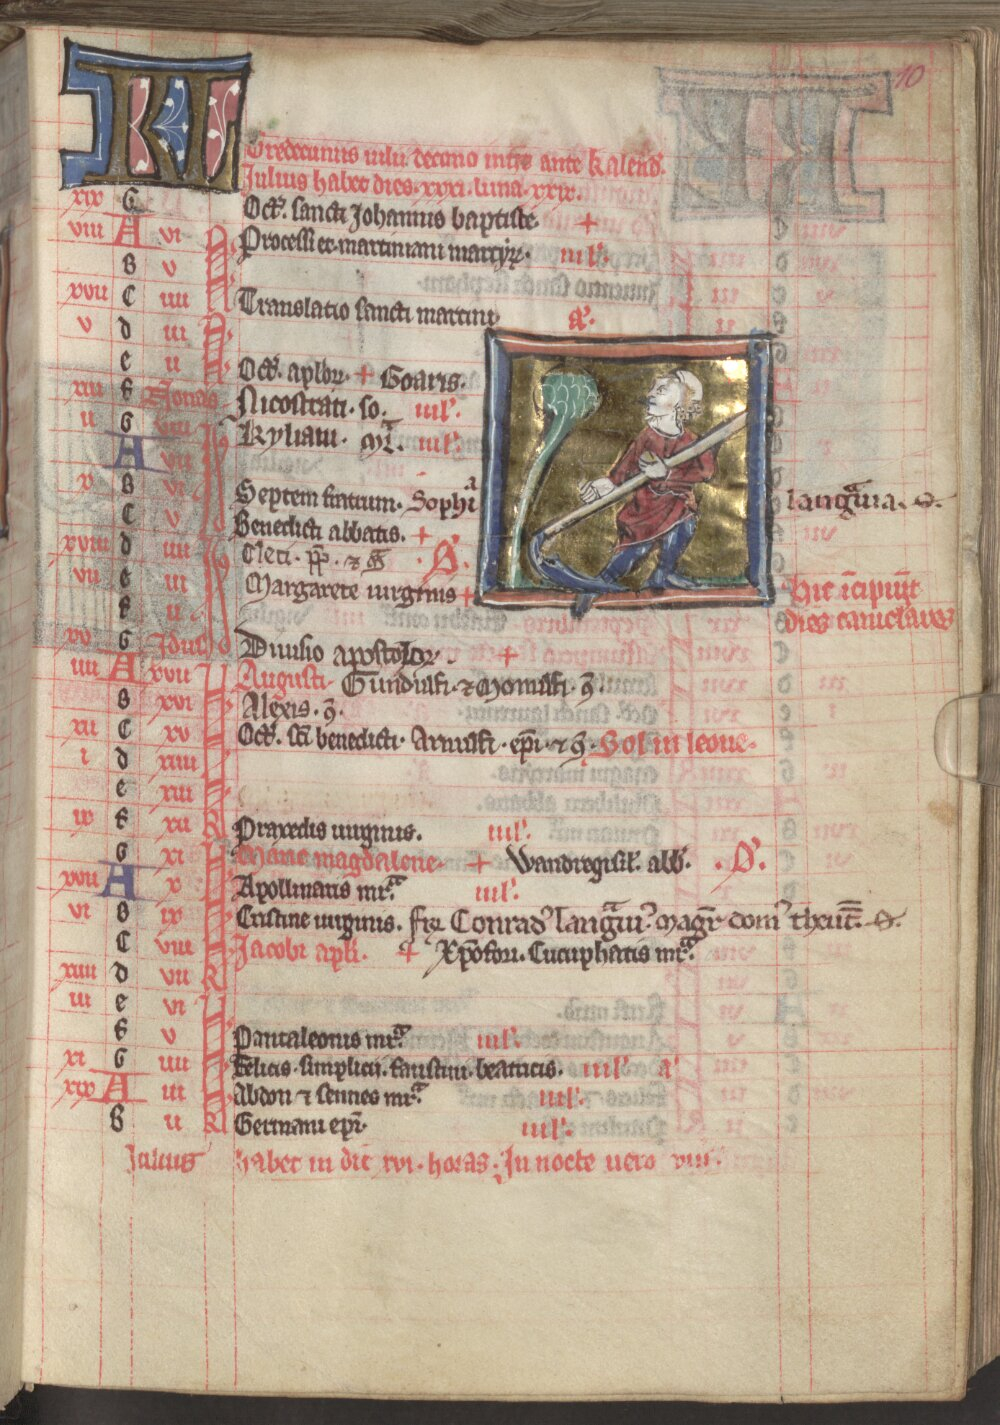 10
KL
Tredecimus iulii decimo innuit ante kalend.
Julius habet dies .xxxi. luna .xxx.
xix G Oct. sancti Johannis baptiste. +
viii A vi N Processi et martiniani martyrum. iii l'.
B v
xvi C iiii Translatio sancti martini
v d iii N
e ii N Oct. aplor. + Goaris.
xiii f Nonas Nicostrati. so. iii l'.
ii G viii Kyliani. mr. iii l'.
A vii
x B vi Septem fratrum. Sophia langravia. o.
C v Benedicti abbatis. +
xviii d iiii Cleti. pp. et m̄
vii e iii Margarete virginis + Hic incipiunt
f ii dies caniculares
xv G Idus Divisio apostolor. +
iiii A xvii Augusti Gundulfi. et Monulfi. 9.
B xvi Alexis. 9.
xii C xv Oct. sci benedicti. Arnulfi. epi. et 9. Sol in leone.
i d xiiii
e xiii
ix f xii R Praxedis virginis. iii l'.
G xi Marie magdalene + Wandregisil. abb.
xvii A x Apollinaris mr. iii l'.
vi B ix Cristine virginis. frater Conradus langravius magister domus theut. o.
C viii Jacobi apli. + Xpofori. Cucuphatis mr.
xiiii d vii R
iii e vi
f v Pantaleonis mr. iii l'.
xi G iiii Felicis. simplicii. faustini. beatricis. iii l'
xix A iii Abdon et sennes mr. iii l'.
B ii R Germani epi. iii l'.
Julius habet in die xvi. horas. In nocte vero viii.